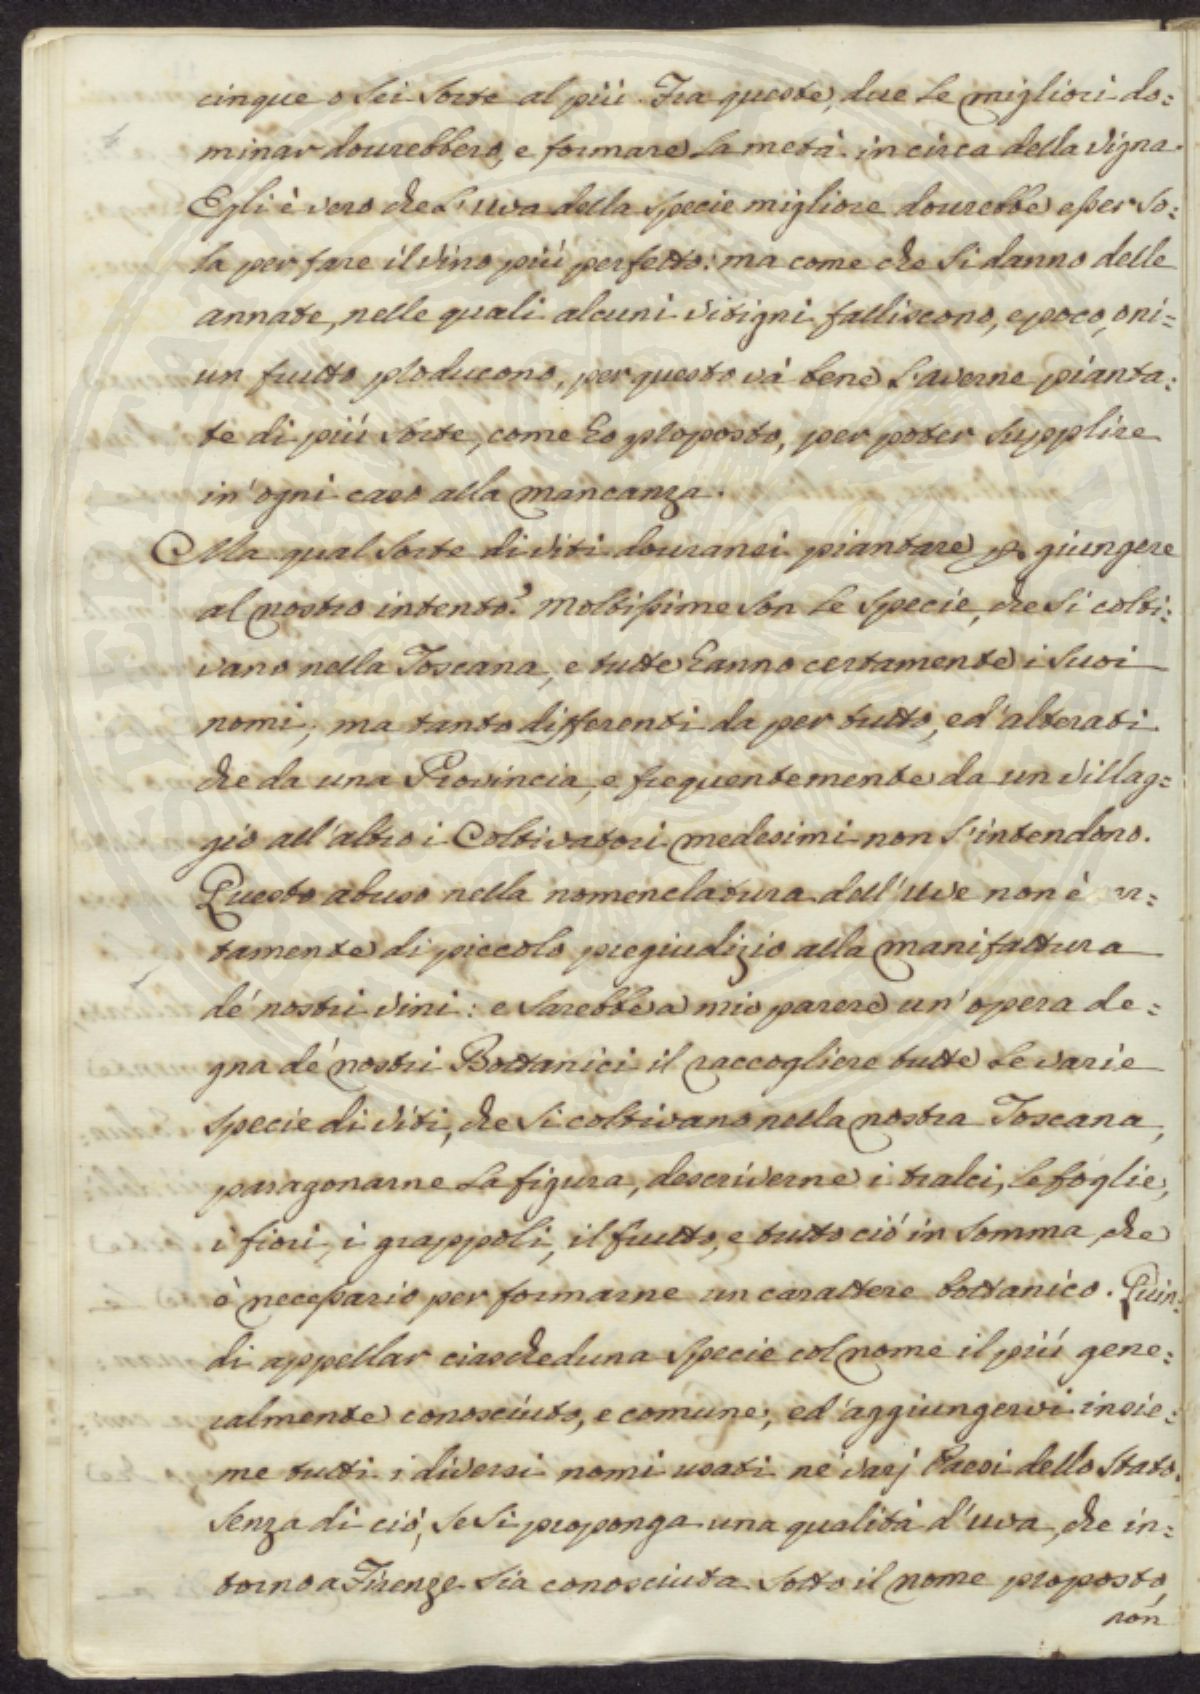 cinque o sei sorte al più. Fra queste, due le migliori do=
minar dourebbero, e formare la metà in circa della Vigna.
Egli è vero che l'uva della specie migliore dourebbe esser so=
la per fare il Vino più perfetto: ma come che si danno delle
annate, nelle quali alcuni Vitigni falliscono, e poco, o ni=
un frutto producono, per questo và bene l'averne pianta=
te di più sorte, come ho proposto, per poter supplire
in'ogni caso alla mancanza.
Ma qual sorte di Viti douransi piantare p. giungere
al nostro intento? Moltissime son le specie, che si colti=
vano nella Toscana, e tutte hanno certamente i suoi
nomi; ma tanto differenti da per tutto, ed'alterati
che da una Provincia, e frequentemente da un Villag=
gio all'altro i Coltivatori medesimi non s'intendono.
Questo abuso nella nomenclatura dell'Uve non è
tamente di piccolo pregiudizio alla manifattura
de' nostri Vini: e sarebbe a mio parere un'opera de=
gna de' nostri Bottanici il raccogliere tutte le varie
specie di Viti, che si coltivano nella nostra Toscana,
paragonarne la figura, descriverne i tralci, le foglie,
i fiori, i grappoli, il frutto, e tutto ciò in somma, che
è necessario per formarne un carattere bottanico. Quin=
di appellar ciascheduna specie col nome il più gene=
ralmente conosciuto, e comune; ed'aggiungervi insie=
me tutti i diversi nomi usati ne' varj Paesi dello Stato.
Senza di ciò, se si proponga una qualità d'uva, che in=
torno a Firenze sia conosciuta sotto il nome proposto,
non